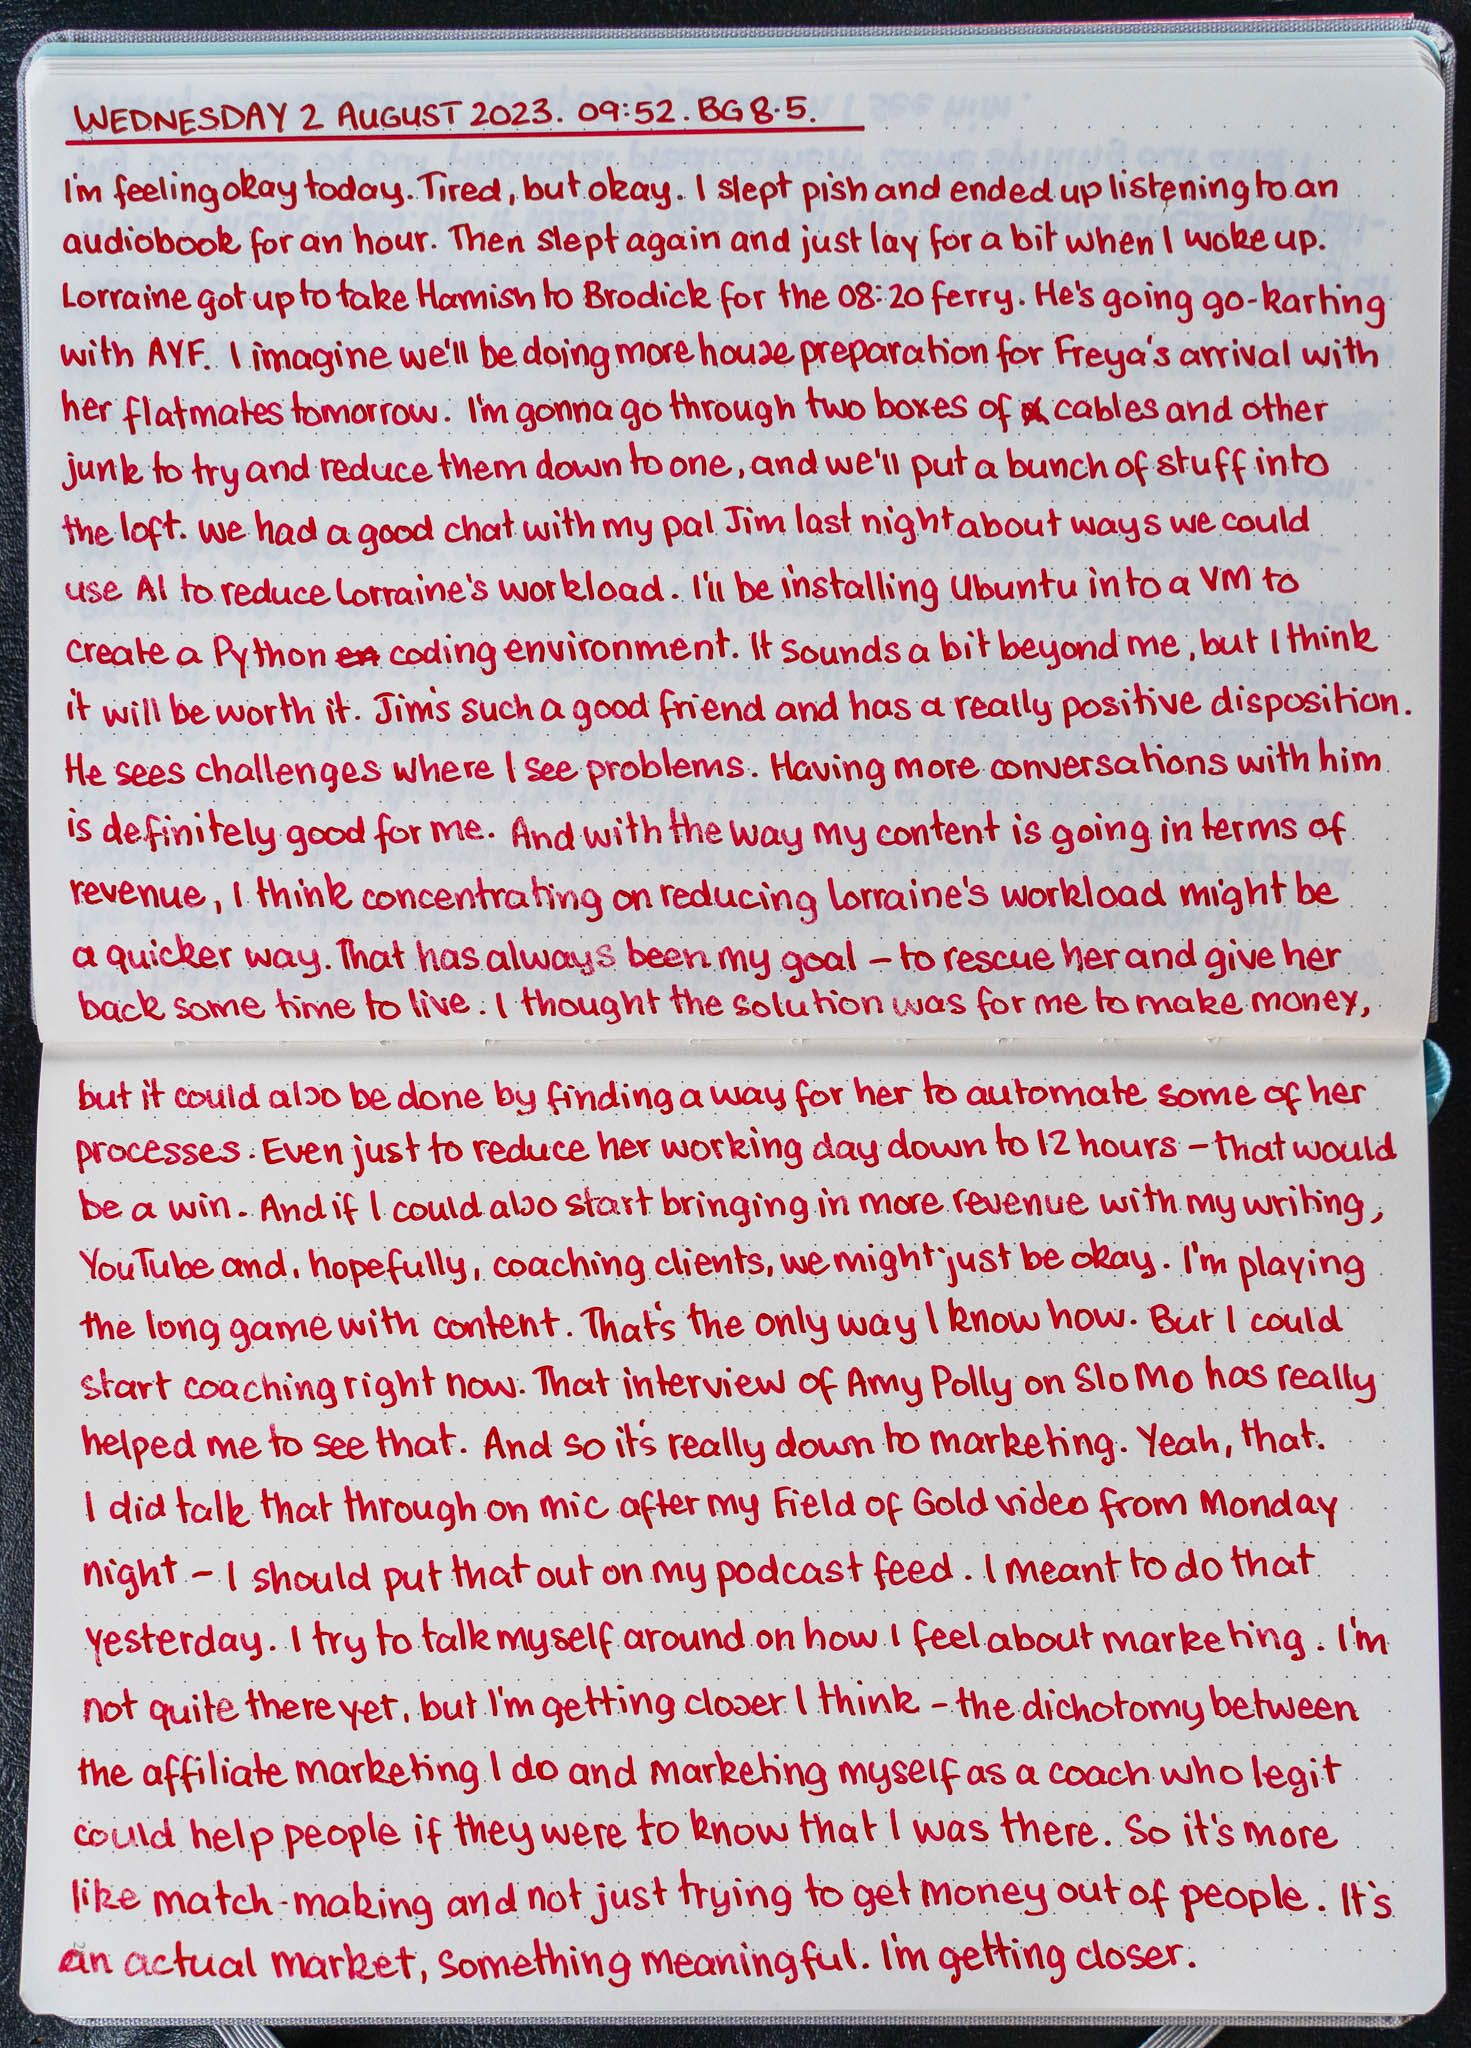 WEDNESDAY 2 AUGUST 2023. 09:52. BG 8.5.
I'm feeling okay today. Tired, but okay. I slept pish and ended up listening to an
audiobook for an hour. Then slept again and just lay for a bit when I woke up.
Lorraine got up to take Hamish to Brodick for the 08:20 ferry. He's going go-karting
with AYF. I imagine we'll be doing more house preparation for Freya's arrival with
her flatmates tomorrow. I'm gonna go through two boxes of cables and other
junk to try and reduce them down to one, and we'll put a bunch of stuff into
the loft. We had a good chat with my pal Jim last night about ways we could
use AI to reduce Lorraine's workload. I'll be installing Ubuntu into a VM to
create a Python en coding environment. It sounds a bit beyond me, but I think
it will be worth it. Jim's such a good friend and has a really positive disposition.
He sees challenges where I see problems. Having more conversations with him
is definitely good for me. And with the way my content is going in terms of
revenue, I think concentrating on reducing Lorraine's workload might be
a quicker way. That has always been my goal – to rescue her and give her
back some time to live. I thought the solution was for me to make money,
but it could also be done by finding a way for her to automate some of her
processes. Even just to reduce her working day down to 12 hours – that would
be a win. And if I could also start bringing in more revenue with my writing,
YouTube and, hopefully, coaching clients, we might just be okay. I'm playing
the long game with content. That's the only way I know how. But I could
start coaching right now. That interview of Amy Polly on Slo Mo has really
helped me to see that. And so it's really down to marketing. Yeah, that.
I did talk that through on mic after my Field of Gold video from Monday
night – I should put that out on my podcast feed. I meant to do that
yesterday. I try to talk myself around on how I feel about marketing. I'm
not quite there yet, but I'm getting closer I think – the dichotomy between
the affiliate marketing I do and marketing myself as a coach who legit
could help people if they were to know that I was there. So it's more
like match-making and not just trying to get money out of people. It's
an actual market, something meaningful. I'm getting closer.